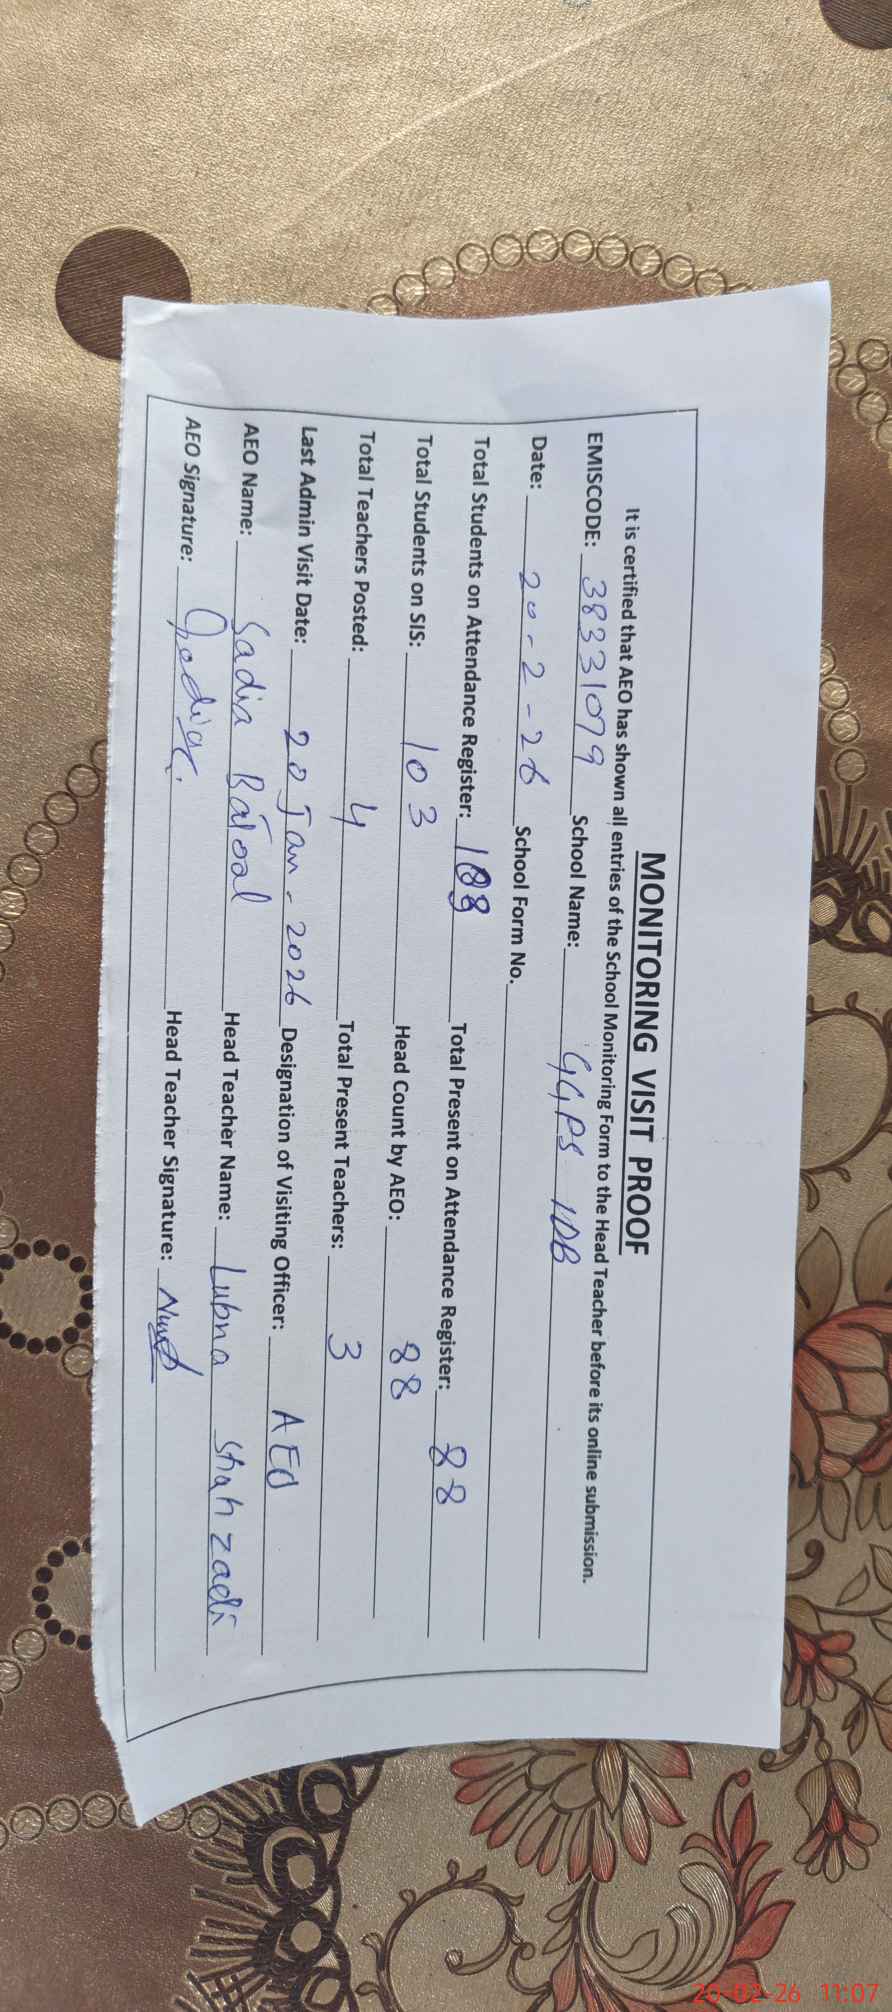 MONITORING VISIT PROOF
It is certified that AEO has shown all entries of the School Monitoring Form to the Head Teacher before its online submission.
EMISCODE: 38331079 School Name: GGPS 1DB
Date: 20-2-26 School Form No.
Total Students on Attendance Register: Total Present on Attendance Register: 88
Total Students on SIS: 103 Head Count by AEO: 88
Total Teachers Posted: 4 Total Present Teachers: 3
Last Admin Visit Date: 20 Jan - 2026 Designation of Visiting Officer: AEO
AEO Name: Sadia Batool Head Teacher Name: Lubna Shahzadi
AEO Signature: Head Teacher Signature:
20-02-26 11:07